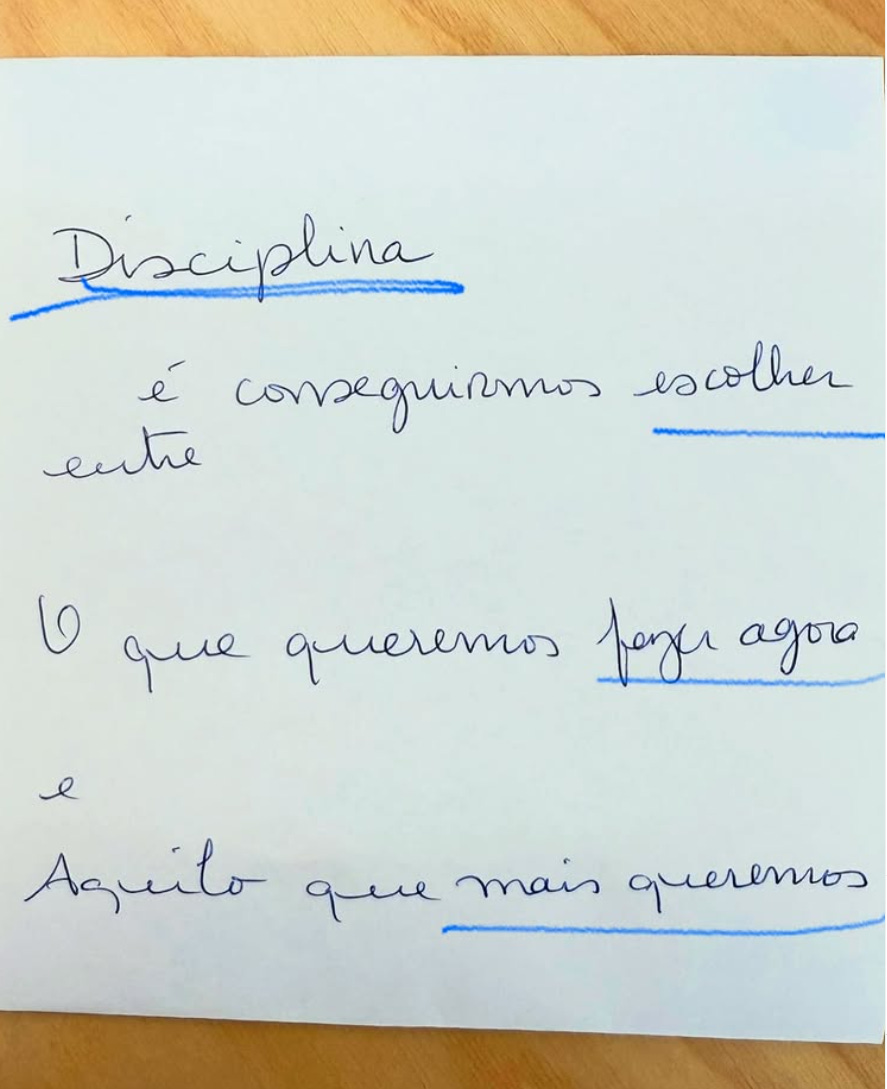 Disciplina
é conseguirmos escolher
entre
O que queremos fazer agora
e
Aquilo que mais queremos